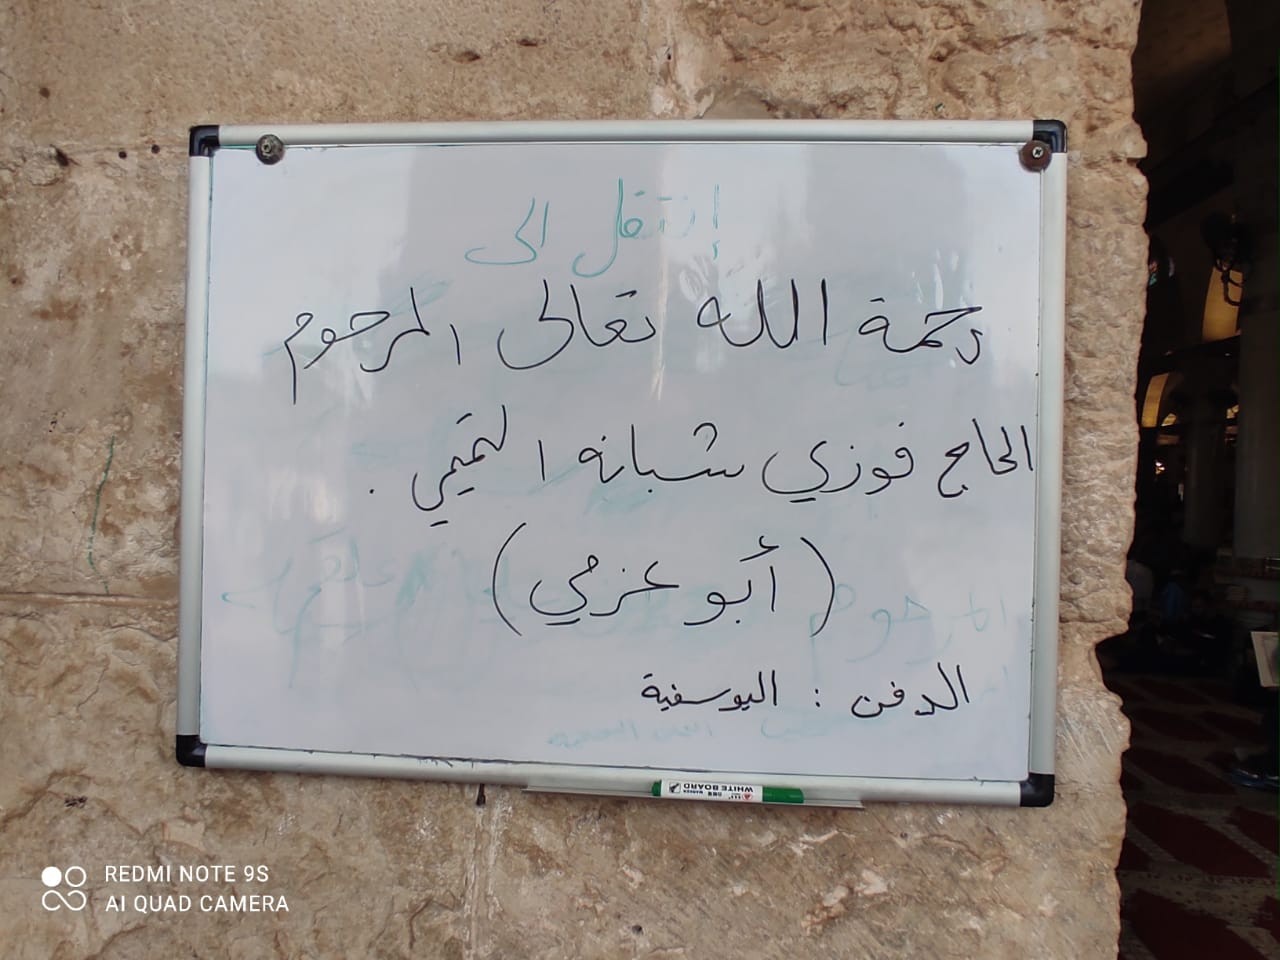 إنتقل الى
رحمة الله تعالى المرحوم
الحاج فوزي شبانه التميمي .
(أبو عزمي)
الدفن : اليوسفية
WHITE BOARD
MARKER
REDMI NOTE 9S
AI QUAD CAMERA